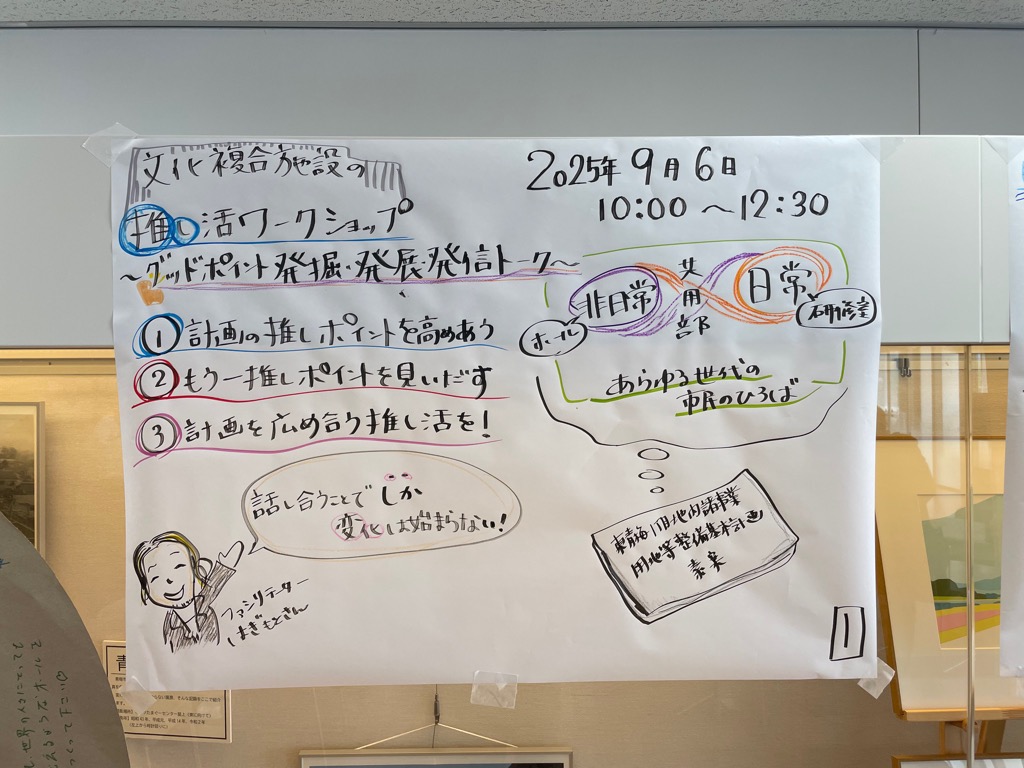 文化複合施設の
推し活ワークショップ
～グッドポイント発掘・発展・発信トーク～
① 計画の推しポイントを高めあう
② もう一推しポイントを見いだす
③ 計画を広め合う推し活を!
話し合うことでしか
変化は始まらない!
ファシリテーター
しまぎもとさん
2025年9月6日
10:00～12:30
非日常
共用部
日常
ホール
研修室
あらゆる世代の
市民のひろば
東青梅1丁目地内諸事業
用地等整備基本計画
素案
1